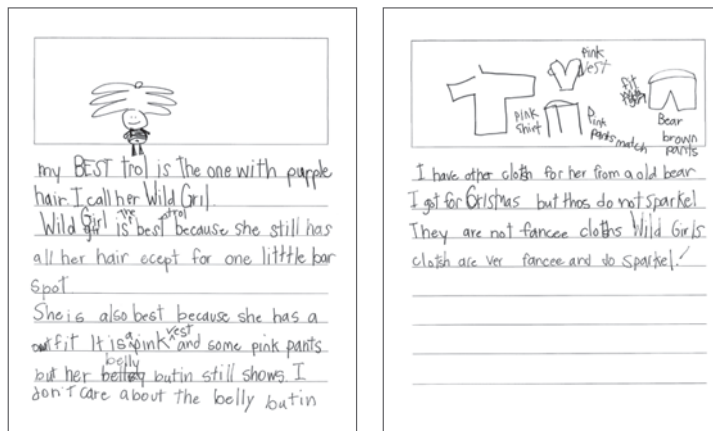 my BEST trol is the one with purple
hair. I call her Wild Gril.
Wild Girl is the best trol because she still has
all her hair ecept for one litttle bar
spot.
She is also best because she has a
outfit It is a pink vest and some pink pants
but her belly butin still shows. I
don't care about the belly butin
pink
vest
pink
shirt
Pink
pants
match
fit
Bear
brown
pants
I have other cloth for her from a old bear
I got for Cristmas but thos do not sparkel
They are not fancee cloths Wild Girls
cloths are ver fancee and do sparkel!